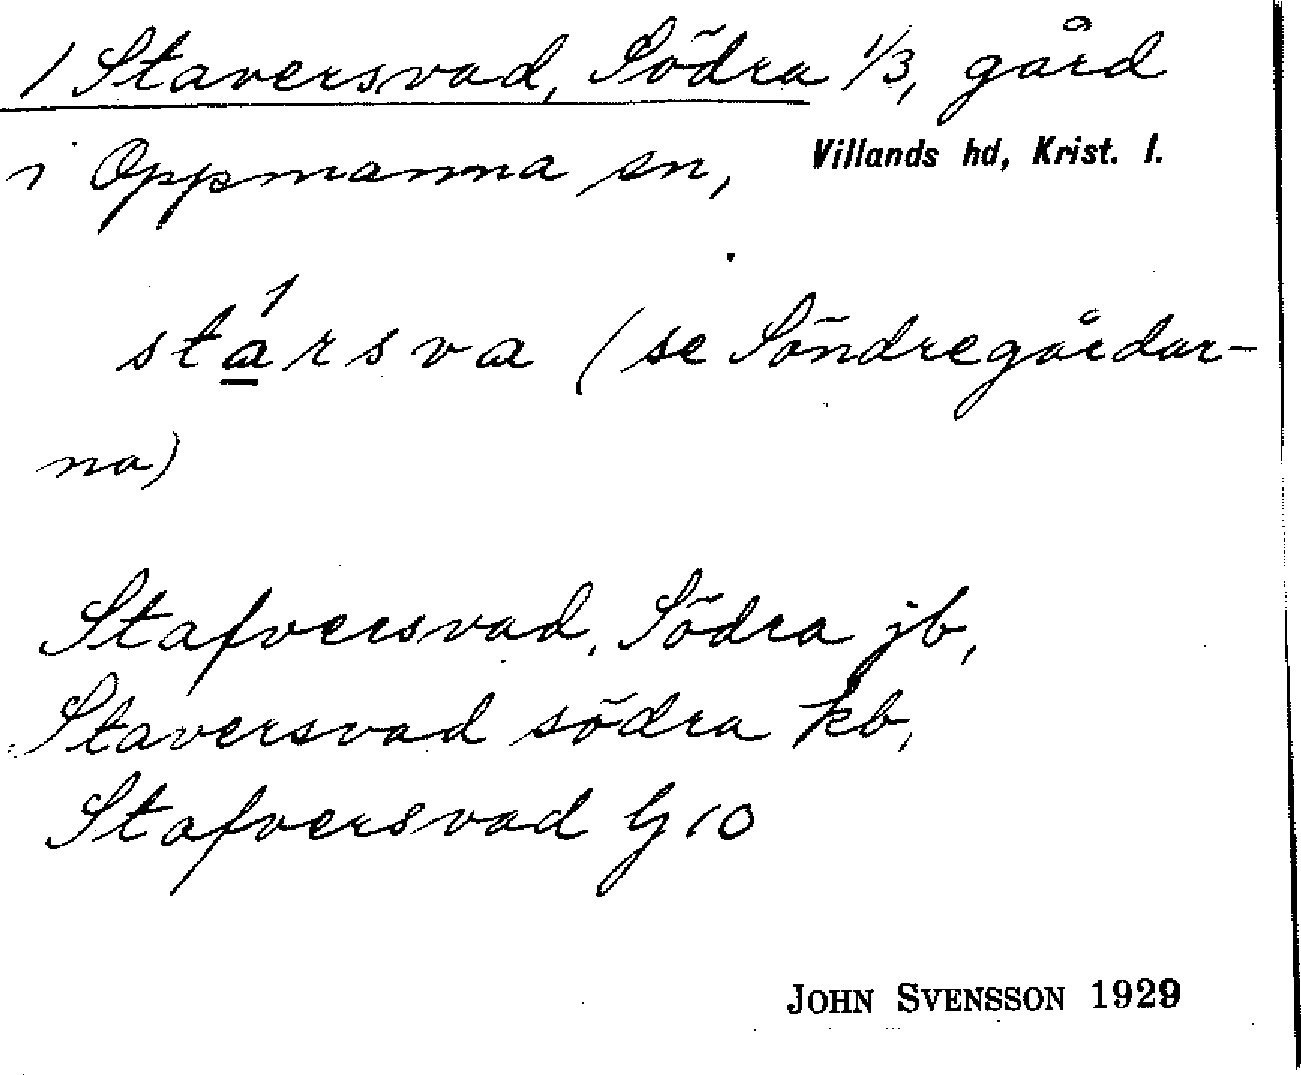 1 Staversvad, Södra 1/3, gård
i Oppmanna sn, Villands hd, Krist. l.
stársva (se Söndregårdar-
na)
Stafversvad, Södra jb,
Staversvad södra kb,
Stafversvad G 10
JOHN SVENSSON 1929